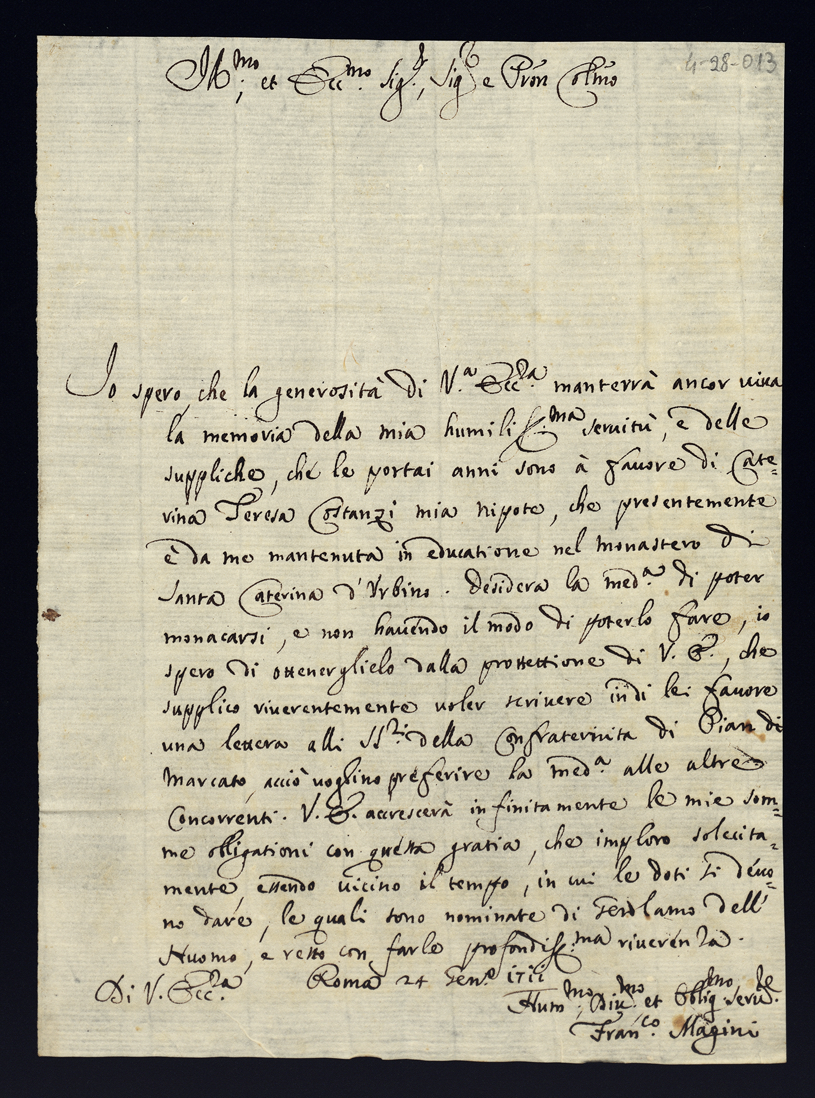 4-28-013
Ill.mo, et Ecc.mo Sig.r, Sig.r e Pron Colmo
Io spero, che la generosità di V.a Ecc.za manterrà ancor viva
la memoria della mia humiliss.ma servitù, e delle
suppliche, che le portai anni sono à favore di Cate=
rina Teresa Costanzi mia nipote, che presentemente
è da me mantenuta in educatione nel monastero di
Santa Caterina d'Urbino. Desidera la med.a di poter
monacarsi, e non havendo il modo di poterlo fare, io
spero di ottenerglielo dalla prottettione di V. E., che
supplico riverentemente voler scrivere in di lei favore
una lettera alli SS.ri della Confraternita di Pian di
Marcato, acciò voglino preferire la med.a alle altre
Concorrenti. V. E. accrescerà infinitamente le mie som=
me obligationi con questa gratia, che imploro solecita=
mente, essendo vicino il tempo, in cui le doti si devo=
no dare, le quali sono nominate di Gerolamo dell'
Huomo, e resto con farle profondiss.ma riverenza.
Di V. Ecc.za Roma 24 Gen.o 1711
Hum.mo, Div.mo et Oblig.mo Serv.re
Fran.co Magini